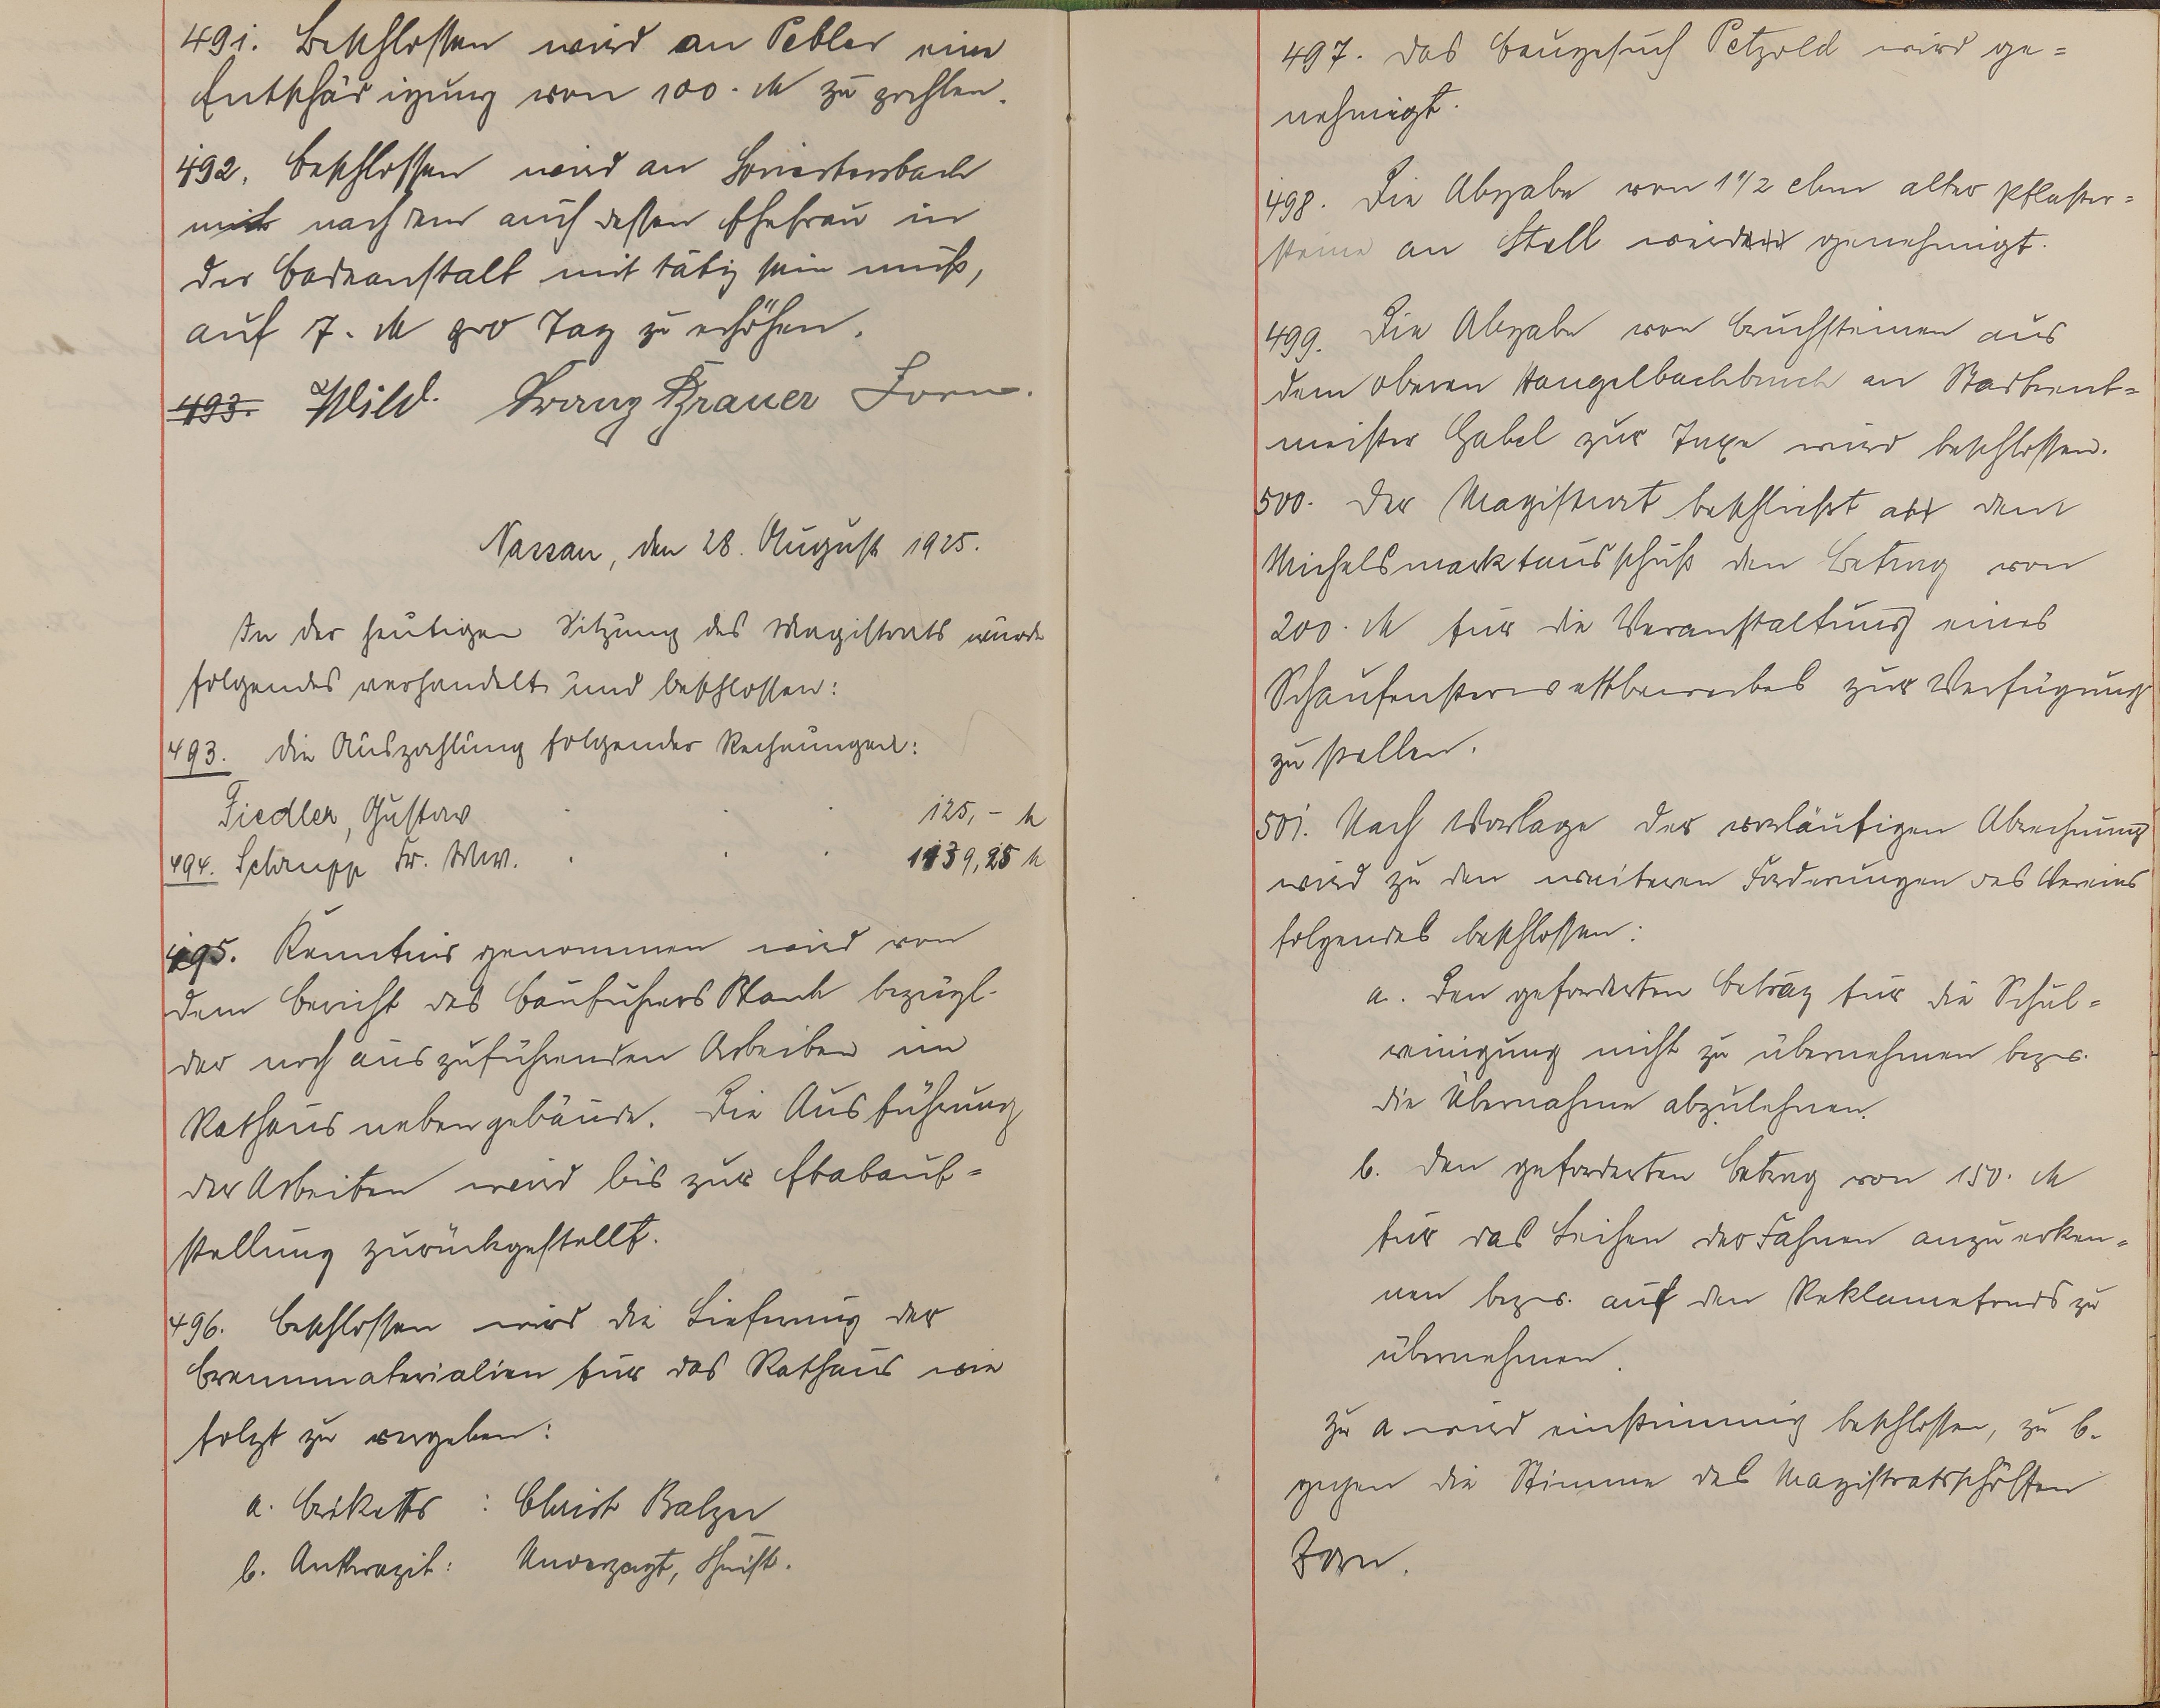 491. Beschlossen wird an Pebler eine
Entschädigung von 100.- M zu zahlen.
492. Beschlossen wird an
mit nachdem auch dessen Ehefrau in
der Badeanstalt mit tätig sein muß,
auf 7.- M pro Tag zu erhöhen.
493. Wild. Franz Brauer Zorn.
Nassau, den 28. August 1925.
In der heutigen Sitzung des Magistrats wurde
folgendes verhandelt und beschlossen:
493. Die Auszahlung folgender Rechnungen:
Fiedler, Gustav 125,- M
494. Schrupp Fr. Wwe. 1439,25 M
495. Kenntnis genommen wird von
dem Bericht des Bauführers bezügl.
der noch auszuführenden Arbeiten im
Rathausnebengebäude. Die Ausführung
der Arbeiten wird bis zur Etatauf-
stellung zurückgestellt.
496. Beschlossen wird die Lieferung der
Brennmaterialien für das Rathaus wie
folgt zu vergeben:
a. Briketts : Christ Balzer
b. Antrazit: Unverzagt, Christ.
497. Das Baugesuch Petzold wird ge-
nehmigt.
498. Die Abgabe von 1 1/2 cbm alter Pflaster-
steine an Stoll wird genehmigt.
499. Die Abgabe von Bruchsteinen aus
dem oberen Hangelbachbruch an Stadtrent-
meister Gabel zur Taxe wird beschlossen.
500. Der Magistrat beschließt dem
Michelsmarktausschuß den Betrag von
200.- M für die Veranstaltung eines
Schaufensterwettbewerbes zur Verfügung
zu stellen.
501. Nach Vorlage der vorläufigen Abrechnung
wird zu den weiteren Forderungen des Vereins
folgendes beschlossen:
a. Den geforderten Betrag für die Schul-
reinigung nicht zu übernehmen bezw.
die Übernahme abzulehnen.
b. Den geforderten Betrag von 150.- M
für das Leihen der Fahnen anzuerken-
nen bezw. auf den Reklamefonds zu
übernehmen.
Zu a wird einstimmig beschlossen, zu b.
gegen die Stimme des Magistratsschöffen
Zorn.